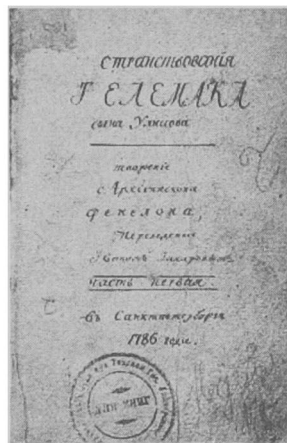 странствования
ТЕЛЕМАКА
сына Улисова
творение
Архиепископа
фенелона,
Переведенная
Иваномъ Захаровымъ
часть первая.
въ Санктпетербурге
1786 года.